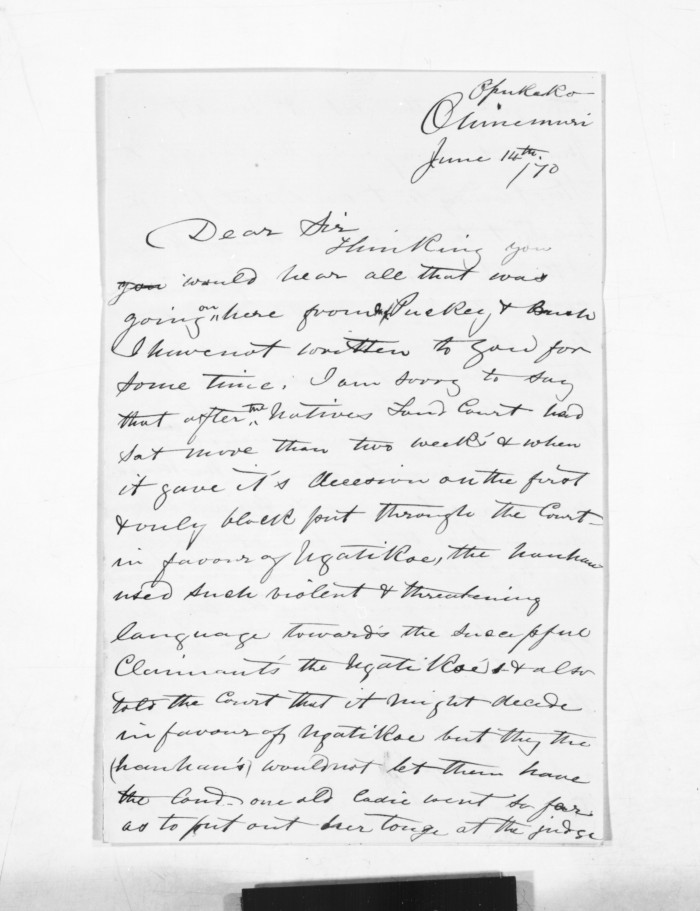 Opukeko
Ohinemuri
June 14th /70
Dear Sir
Thinking you
you would hear all that was
going on here from Puckey & Bush
I have not written to you for
some time. I am sorry to say
that after the Natives Land Court had
sat more than two week's & when
it gave it's decesion on the first
& only block put through the Court
in favour of Ngatikoe, the hauhau
used such violent & threatening
language towards the sucessful
Claimant's the Ngatikoe's & also
told the Court that it might decide
in favour of Ngatikoe but they the
(hauhau's) would not let them have
the land - one old Ladie went so far
as to put out her tonge at the judge